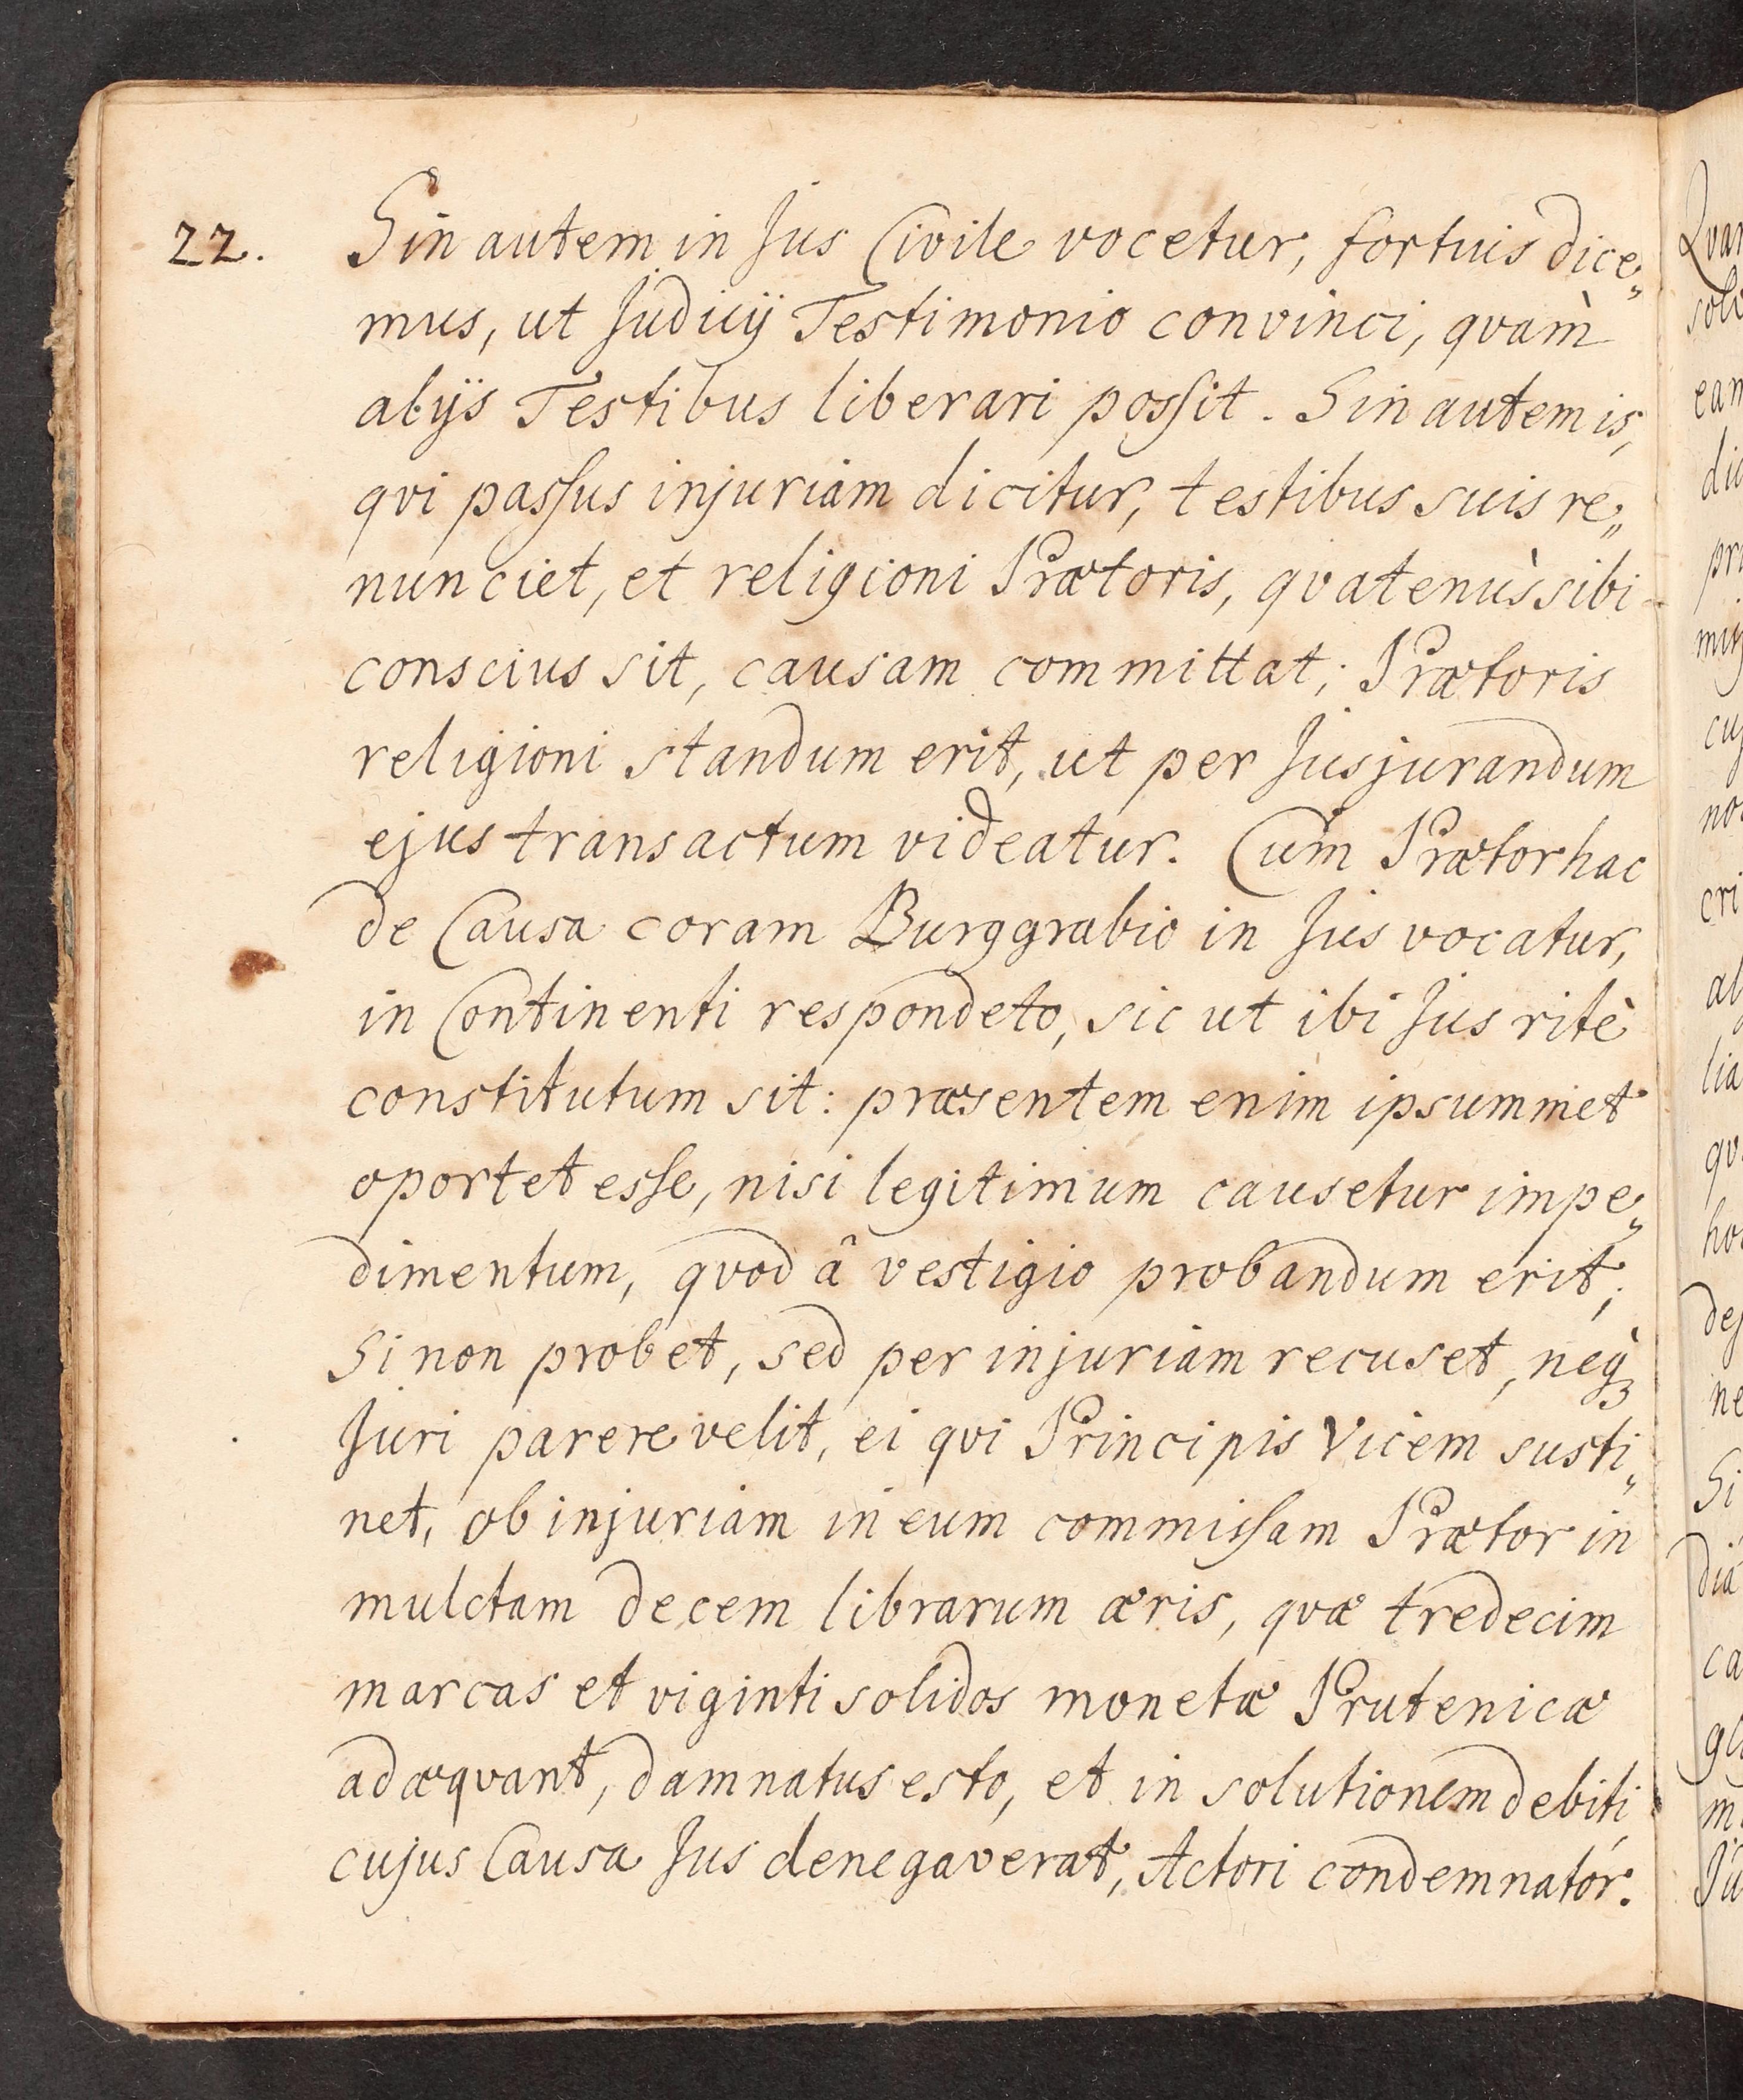 22. Sin autem in Jus Civile vocetur, fortuis dice„
mus, ut Judicij Testimonio convinci, qvam̀
alijs Testibus liberari poſsit. Sin autem is,
qvi paſsus injuriam dicitur, testibus suis re„
nunciet, et religioni Prætoris, qvatenùs sibi
conscius sit, causam committat; Prætoris
religioni standum erit, ut per Jusjurandum
ejus transactum videatur. Cum Prætor hac
de Causa coram Burggrabio in Jus vocatur,
in Continenti respondeto, sic ut ibi Jus ritè
constitutum sit: præsentem enim ipsummet
oportet eſse, nisi legitimum causetur impe„
dimentum, qvod â vestigio probandum erit;
Si non probet, sed per injuriam recuset, neq̀ꝫ
Juri parere velit, ei qvi Principis Vicem susti„
net, ob injuriam in eum commiſsam Prætor in
mulctam decem librarum æris, qvæ tredecim
marcas et viginti solidos monetæ Prutenicæ
adæqvant, damnatus esto, et in solutionem debiti
cujus Causa Jus denegaverat, Actori condemnatór.